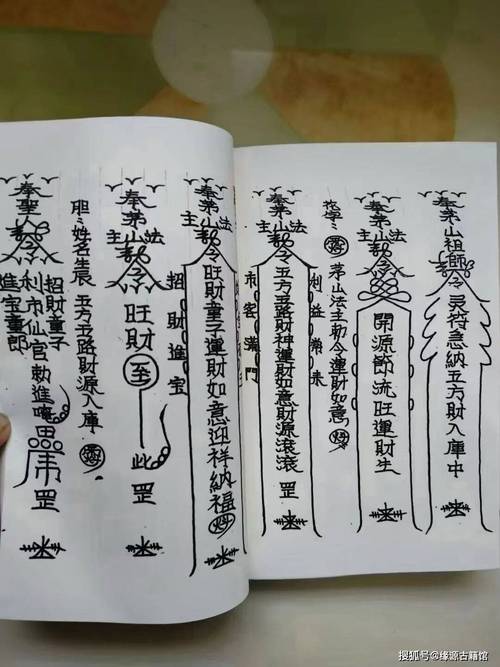 奉茅山祖師令灵符意納五方財入庫中
奉茅山勅令開源節流旺運財生
茅山法主勅令運財如意
利益常来
奉茅山法主勅令五方五路財神運財如意財源滾滾罡
市客滿門
奉茅山法主勅令旺財童子運財如意迎祥納福
招財進宝
奉茅山法主勅令旺財至此罡
胆姓名生辰五方五路財源入庫
招財童子
奉聖勅令利市仙官勅進唵罡
進宝童郎
搜狐号@缘源古籍馆